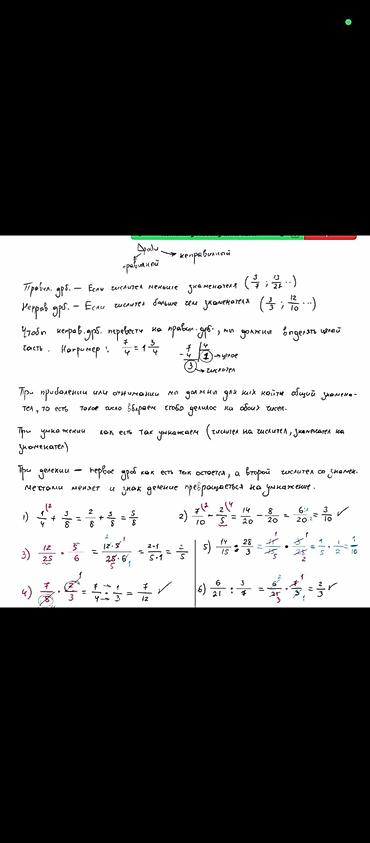 Дроби → неправильной
правильной
Правил. дрб. — Если числител меньше знаменателя (3/7 ; 13/21 ...)
Неправ. дрб. — Если числител больше чем знаменателя (3/3 ; 12/10 ...)
Чтобы неправ. дрб. перевести на правил. дрб., мы должны выделить целой
часть. Например: 7/4 = 1 3/4
→ целое
→ числител
При прибавлении или отнимании мы должны для них найти общий знамена-
тел, то есть такое число выбираем чтобы делилос на обоих чисел.
При умножении как есть так умножаем (числител на числител, знаменател на
знаменател)
При делении — первое дроб как есть так остается, а второй числител со знамен.
местами меняет и знак деление превращаеться на умножение.
1) 1/4 + 3/8 = 2/8 + 3/8 = 5/8
2) 7/10 − 2/5 = 14/20 − 8/20 = 6/20 = 3/10 ✓
3) 12/25 · 5/6 = 12·5/25·6 = 2·1/5·1 = 2/5
5) 14/15 : 28/3 = · = 1/5 · 1/2 = 1/10
4) 7/8 · 2/3 = 7/4 · 1/3 = 7/12 ✓
6) 6/21 : 3/7 = 6/21 · 7/3 = 2/3 ✓